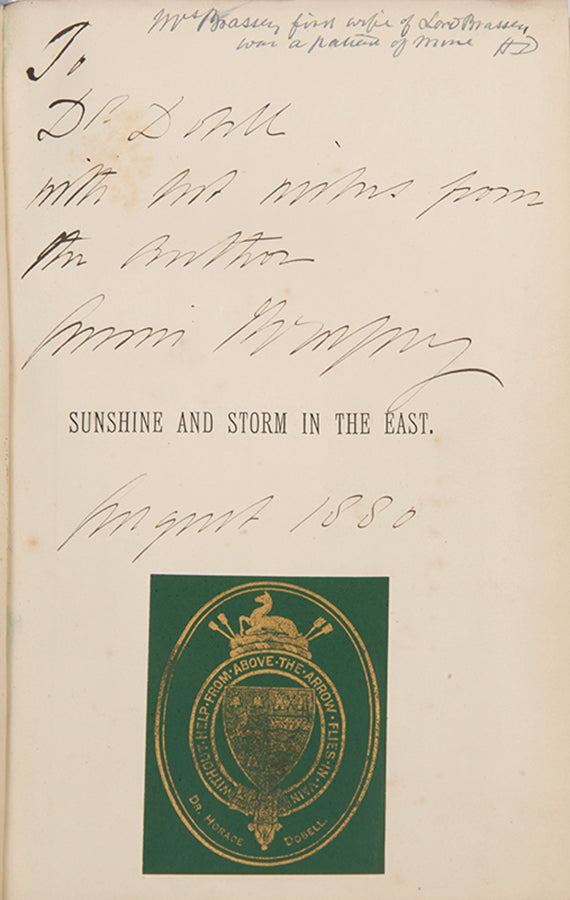 Mrs Brassey first wife of Lord Brassey
was a patient of mine HD
To
Dr Dobell
with best wishes from
the author
Annie Brassey
SUNSHINE AND STORM IN THE EAST.
August 1880
WITHOUT·HELP·FROM·ABOVE·THE·ARROW·FLIES·IN·VAIN
DR. HORACE DOBELL.